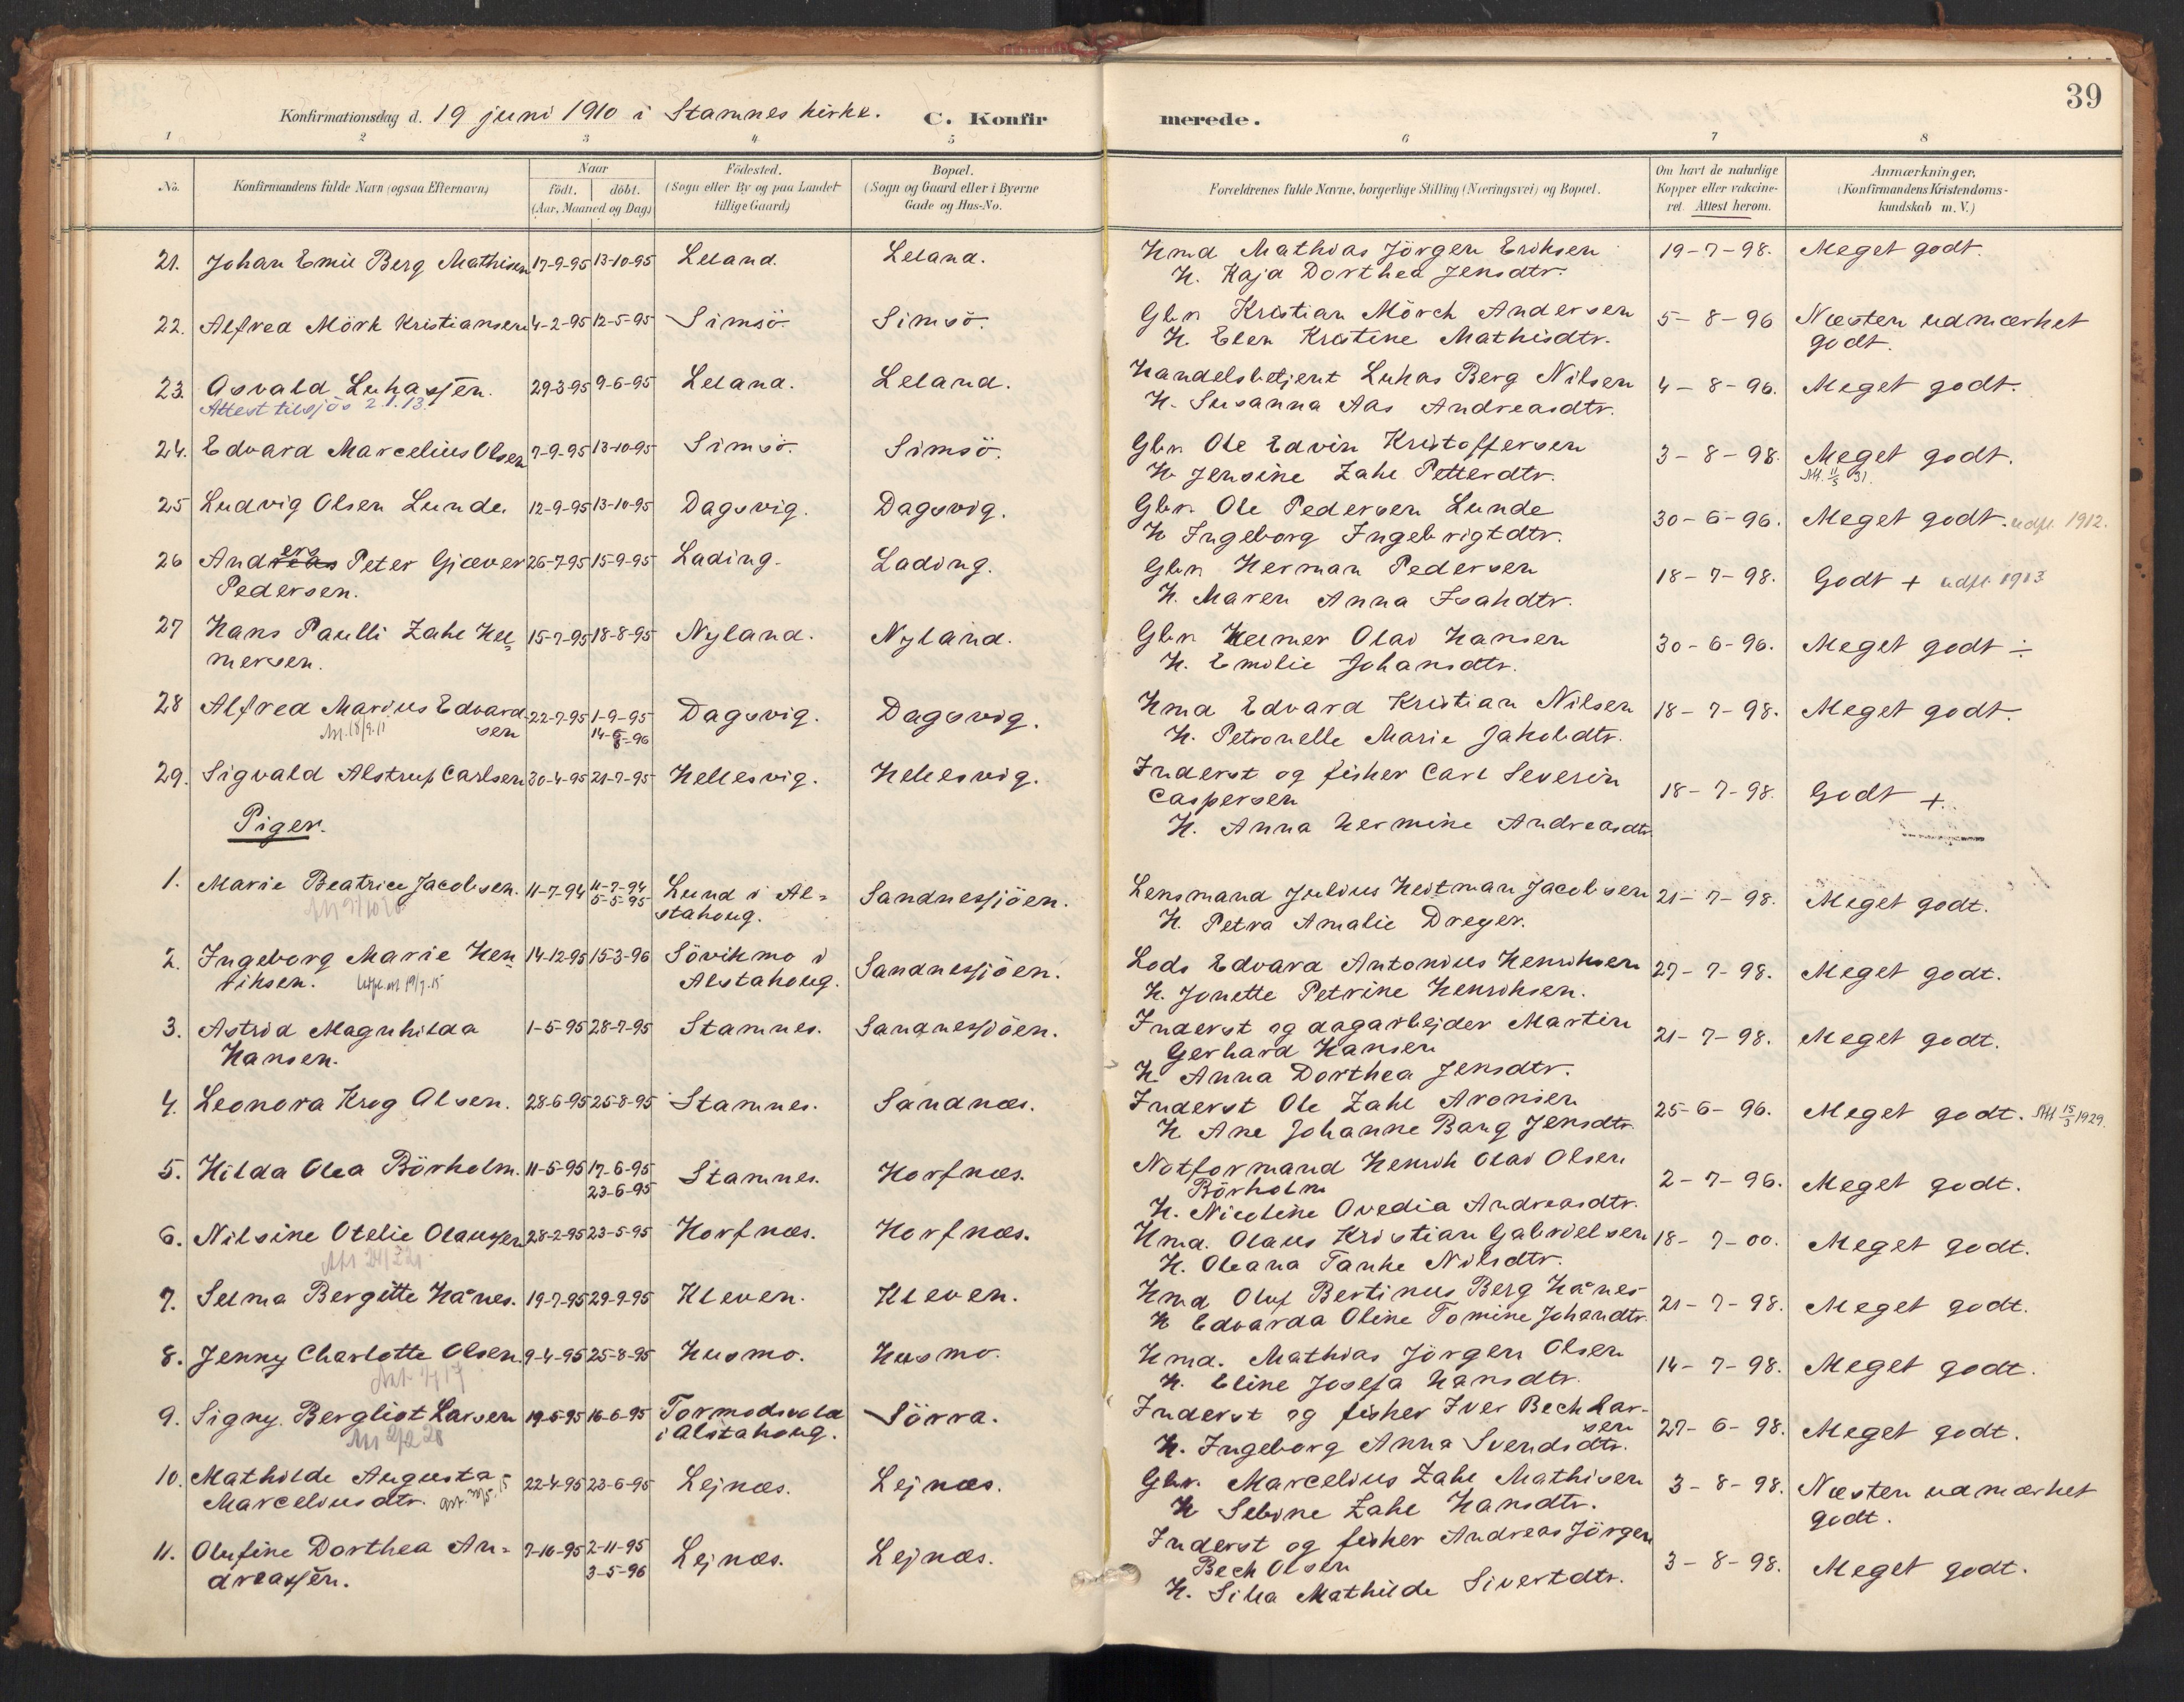 39
Konfirmationsdag d. 19 juni 1910 i Stamnes kirke. C. Konfirmerede.
1 2 3 4 5 6 7 8
No. | Konfirmandens fulde Navn (ogsaa Efternavn) | Naar födt. | döbt. (Aar, Maaned og Dag) | Födested. (Sogn eller By og paa Landet tillige Gaard) | Bopæl. (Sogn og Gaard eller i Byerne Gade og Hus-No. | Forældrenes fulde Navne, borgerlige Stilling (Næringsvei) og Bopæl. | Om havt de naturlige Kopper eller vakcineret. Attest herom. | Anmærkninger. (Konfirmandens Kristendomskundskab m. V.)
21. Johan Emil Berg Mathisen 17-9-95 13-10-95 Leland. Leland. Hmd Mathias Jörgen Eriksen 19-7-98. Meget godt.
H. Kaja Dorthea Jensdtr.
22. Alfred Mörk Kristiansen 4-2-95 12-5-95 Simsö. Simsö. Gbr. Kristian Mörch Andersen 5-8-96 Næsten udmærket
H. Elen Kristine Mathisdtr. godt.
23. Osvald Lukassen. 29-3-95 9-6-95 Leland. Leland. Handelsbetjent Lukas Berg Nilsen 4-8-96. Meget godt.
Attest tilsjös 2.1.13. H. Susanna Aas Andreasdtr.
24. Edvard Marcelius Olsen 7-9-95 13-10-95 Simsö. Simsö. Gbr. Ole Edvin Kristoffersen 3-8-98. Meget godt.
H. Jensine Zahl Petterdtr. Att. 11/5 31.
25 Ludvig Olsen Lunde 12-9-95 13-10-95 Dagsvig. Dagsvig. Gbr. Ole Pedersen Lunde 30-6-96. Meget godt. udfl. 1912.
H Ingeborg Ingebrigtdtr.
26 Andreas ers Peter Gjæver 26-7-95 15-9-95 Lading. Lading. Gbr. Herman Pedersen 18-7-98. Godt + udfl. 1913
Pedersen. H. Maren Anna Isakdtr.
27 Hans Paulli Zahl Hel= 15-7-95 18-8-95 Nyland. Nyland. Gbr. Helmer Olai Hansen 30-6-96. Meget godt ÷
mersen. H. Emilie Johansdtr.
28 Alfred Marius Edvard- 22-7-95 1-9-95 Dagsvig. Dagsvig. Hmd Edvard Kristian Nilsen 18-7-98. Meget godt.
sen 14-6-96 H. Petronelle Marie Jakobdtr.
Att. 18/9.11
29. Sigvald Alstrup Carlsen 30-4-95 21-7-95 Hellesvig. Hellesvig. Inderst og fisker Carl Severin
Caspersen 18-7-98. Godt +
H. Anna Hermine Andreasdtr.
Piger.
1. Marie Beatrice Jacobsen. 11-7-94 11-7-94 Lund i Al= Sandnessjöen. Lensmand Julius Heitman Jacobsen 21-7-98. Meget godt.
5-5-95 stahoug. H. Petra Amalie Dreyer.
2. Ingeborg Marie Hen= 14-12-95 15-3-96 Sövikmo i Sandnessjöen. Lods Edvard Antonius Henriksen 27-7-98. Meget godt.
riksen. Utfl.att 19/7.15 Alstahoug. H. Jonette Petrine Henriksen.
3. Astrid Magnhilda 1-5-95 28-7-95 Stamnes. Sandnessjöen. Inderst og dagarbejder Martin 21-7-98. Meget godt.
Hansen. Gerhard Hansen
H. Anna Dorthea Jensdtr.
4. Leonora Krog Olsen. 28-6-95 25-8-95 Stamnes. Sandnæs. Inderst Ole Zahl Aronsen 25-6-96. Meget godt. Att 15/3 1929.
H Ane Johanne Bang Jensdtr.
5. Hilda Olea Börholm. 11-5-95 17-6-95 Stamnes. Horfnæs. Notformand Henrik Olai Olsen 2-7-96. Meget godt.
23-6-95 Börholm
H. Nicoline Ovedia Andreasdtr.
6. Nilsine Otelie Olaussen 28-2-95 23-5-95 Horfnæs. Horfnæs. Hmd. Olaus Kristian Gabrielsen 18-7-00. Meget godt.
H. Oleana Tanke Nilsdtr.
7. Selma Bergitte Hånes. 19-7-95 29-9-95 Kleven. Kleven. Hmd Oluf Bertinus Berg Hånes 21-7-98. Meget godt.
H Edvarda Oline Tomine Johandtr.
8. Jenny Charlotte Olsen. 9-4-95 25-8-95 Husmo. Husmo. Hmd. Mathias Jörgen Olsen 14-7-98. Meget godt.
H. Eline Josefa Hansdtr.
9. Signy Bergliot Larsen 19-5-95 16-6-95 Tormodsvold Sörra. Inderst og fisker Iver Bech Lar- 27-6-98. Meget godt.
i Alstahoug. sen
H. Ingeborg Anna Svendsdtr.
10. Mathilde Augusta 22-4-95 23-6-95 Lejnæs. Lejnæs. Gbr. Marcelius Zahl Mathisen 3-8-98. Næsten udmærket
Marceliusdtr. H Sebine Zahl Hansdtr. godt.
11. Olufine Dorthea An= 7-10-95 2-11-95 Lejnæs. Lejnæs. Inderst og fisker Andreas Jörgen 3-8-98. Meget godt.
dreassen. 3-5-96 Bech Olsen
H. Silia Mathilde Sivertdtr.